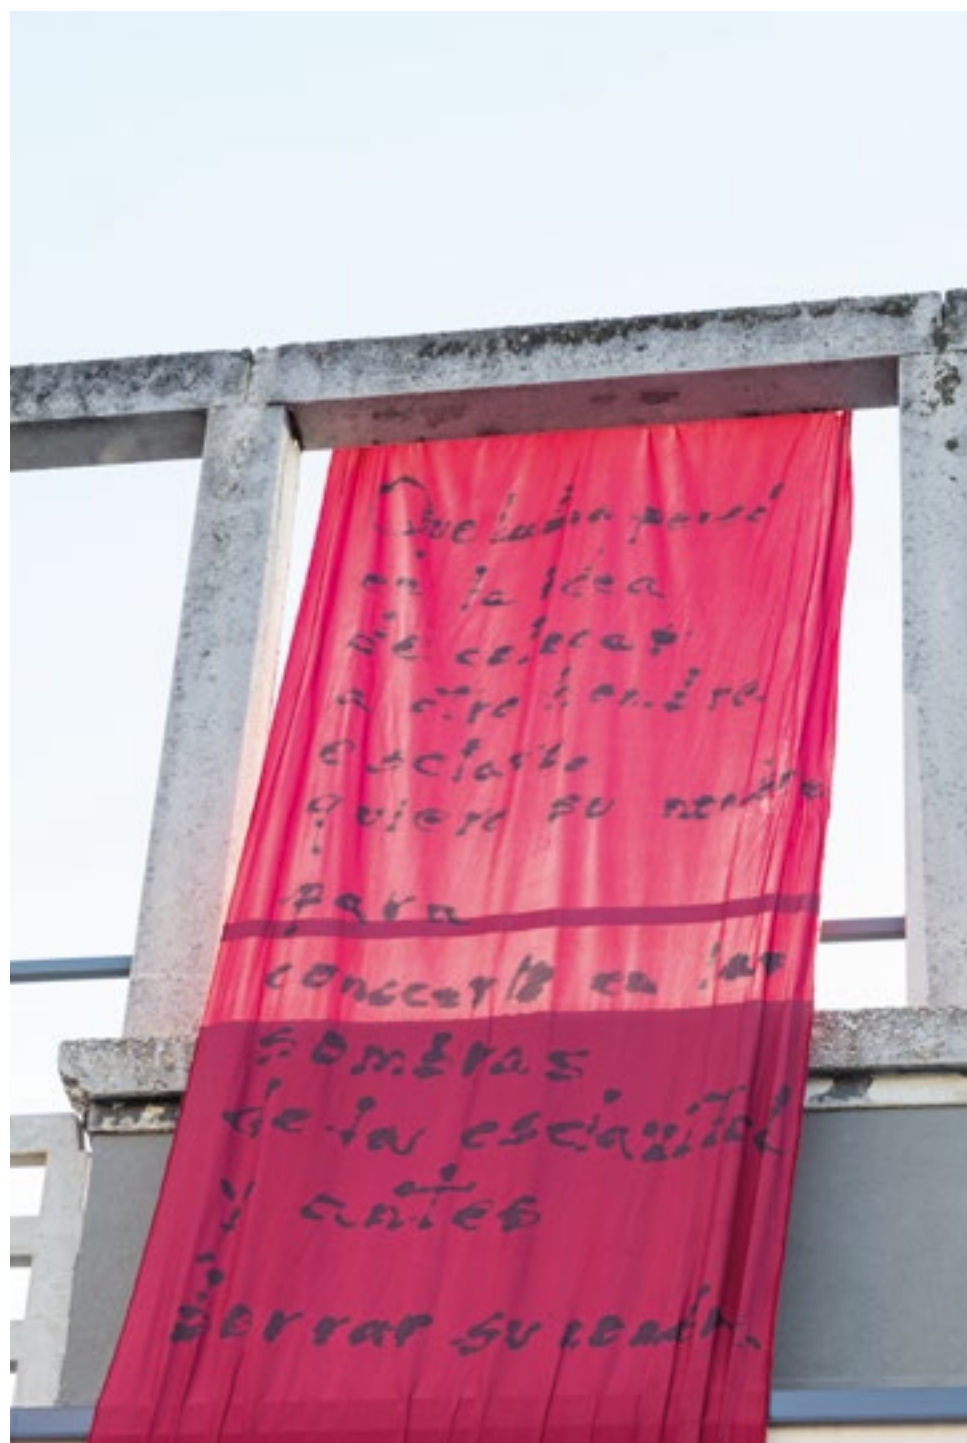 Que hubra pensó
en la idea
de colocar
a otro hombre
esclavo
quiere su nombre
para
conocerlo en las
sombras
de la esclavitud
y antes
borrar su nombr